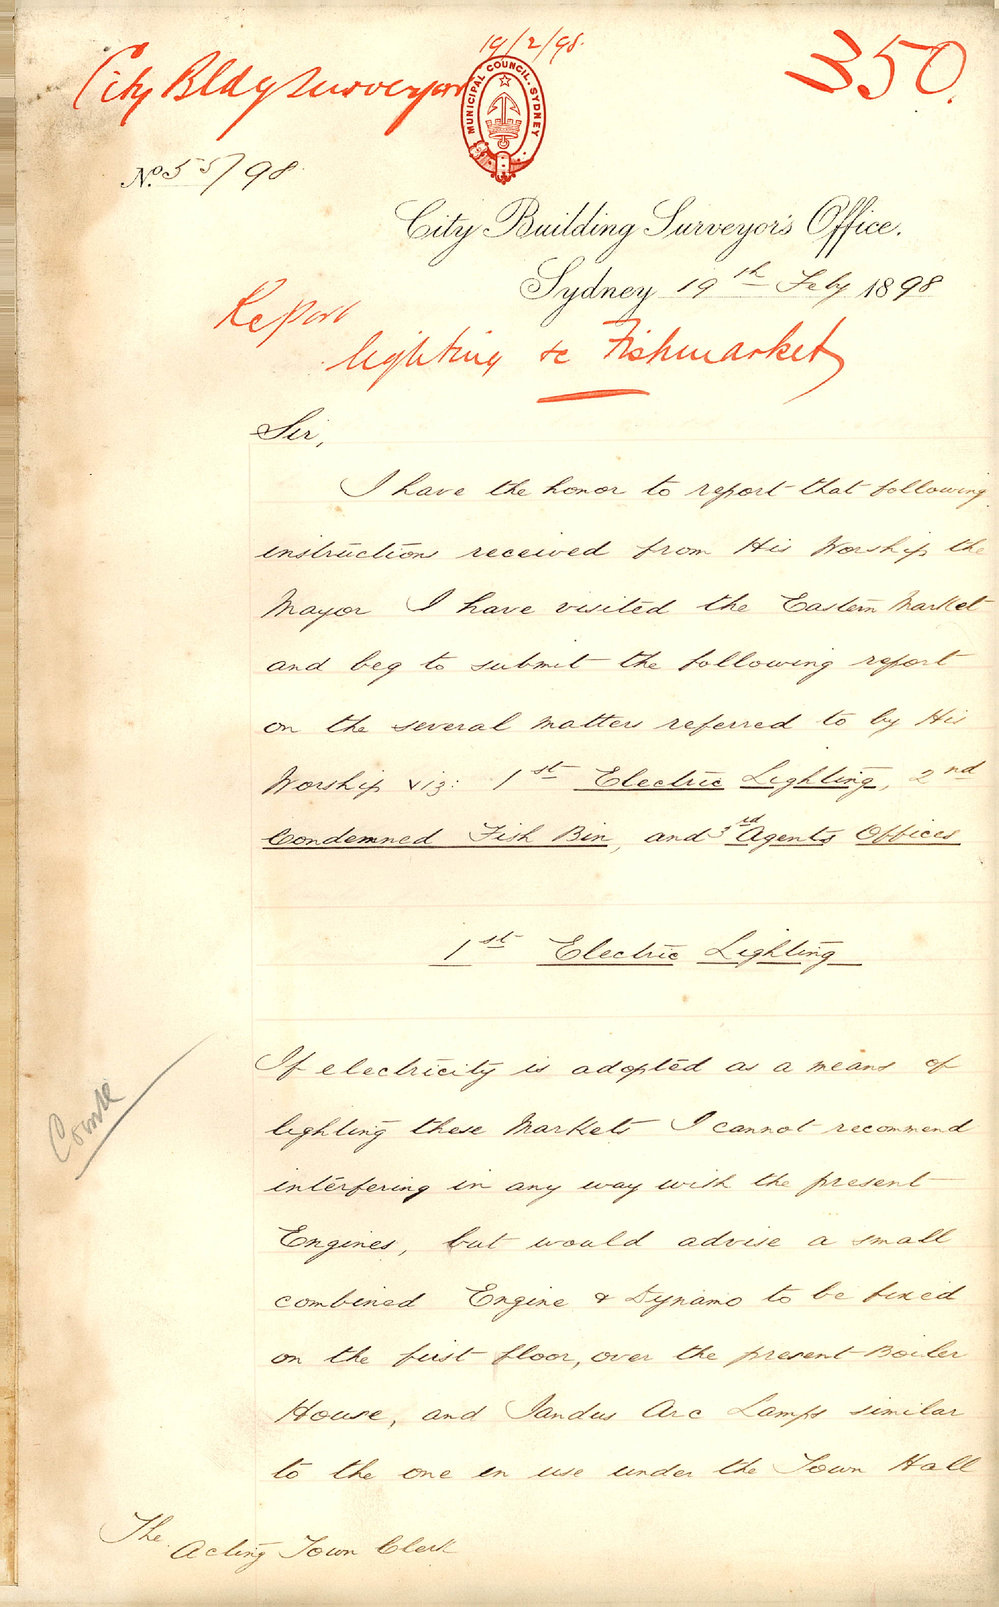 19/2/98.
City Bldg Surveyor
350.
MUNICIPAL COUNCIL. SYDNEY
No. 55/98
City Building Surveyor's Office.
Sydney 19th Feby 1898
Report
lighting &c Fishmarket
Sir,
I have the honor to report that following
instructions received from His Worship the
Mayor I have visited the Eastern Market
and beg to submit the following report
on the several matters referred to by His
Worship viz: 1st Electric Lighting, 2nd
Condemned Fish Bin, and 3rd Agents Offices
1st Electric Lighting
If electricity is adopted as a means of
lighting these Markets I cannot recommend
interfering in any way with the present
Engines, but would advise a small
combined Engine & Dynamo to be fixed
on the first floor, over the present Boiler
House, and Jandus Arc Lamps similar
to the one in use under the Town Hall
The
Acting Town Clerk